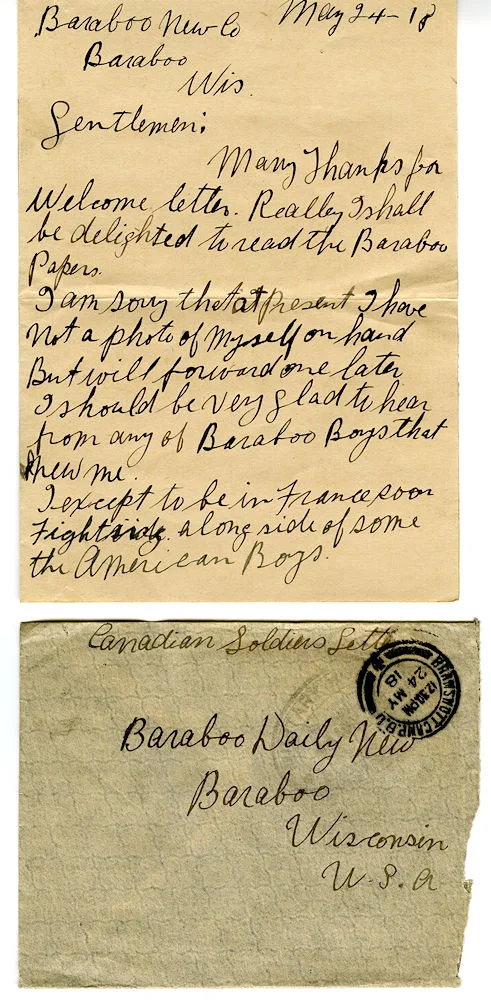 Baraboo New Co May 24-18
Baraboo
Wis.
Gentlemen:
Many Thanks for
Welcome letter. Really I shall
be delighted to read the Baraboo
Papers.
I am sorry that at present I have
Not a photo of Myself on hand
But will forward one later
I should be very glad to hear
from any of Baraboo Boys that
knew me.
I except to be in France soon
Fighting along side of some
the American Boys.
Canadian Soldiers Lette
BRAMSHOTT CAMP B.O
12.30 PM
24 MY
18
Baraboo Daily New
Baraboo
Wisconsin
U.S.A